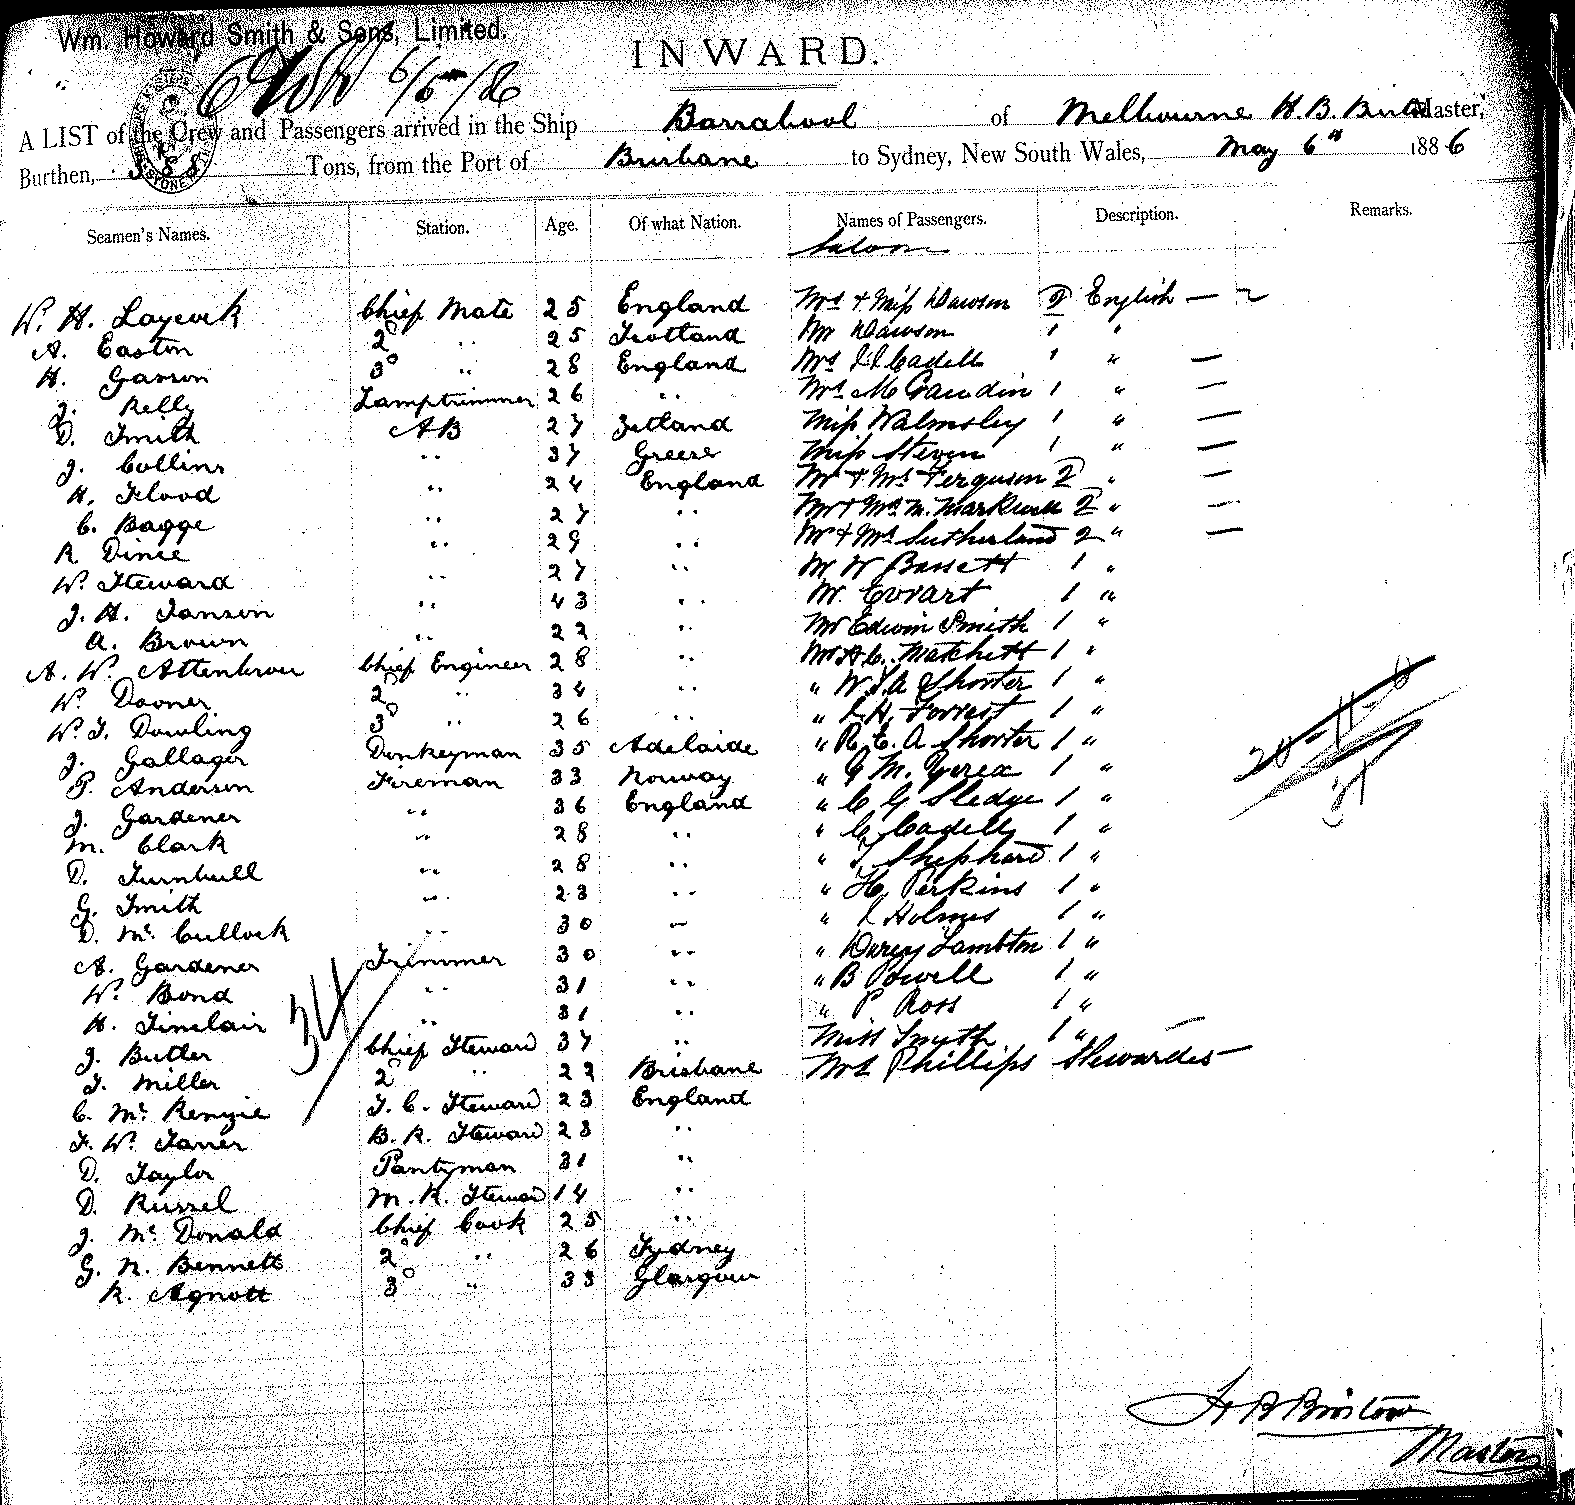 Wm. Howard Smith & Sons, Limited.
6/5/86
INWARD.
A LIST of the Crew and Passengers arrived in the Ship Barrabool of Melbourne H. B. Master,
Burthen, Tons, from the Port of Brisbane to Sydney, New South Wales, May 6th 1886
Seamen's Names. Station. Age. Of what Nation. Names of Passengers. Description. Remarks.
Saloon
W. H. Laycock Chief Mate 25 England Mrs & Miss Dawson 2 English —
A. Easton 2° " 25 Scotland Mr Dawson 1 "
H. Gasson 3° " 28 England Mrs Cadell 1 " —
J. Kelly Lamptrimmer 26 " Mrs M Gaudin 1 " —
D. Smith AB 27 Zetland Miss Walmsley 1 " —
J. Collins " 37 Greese Miss Steven 1 " —
H. Flood " 24 England Mr & Mrs Ferguson 2 " —
C. Bagge " 27 " Mr & Mrs M. Markwell 2 " —
R. Dince " 29 " Mr & Mrs Sutherland 2 " —
W. Steward " 27 " Mr W Bassett 1 "
J. H. Janson " 43 " Mr. Evrart 1 "
A. Brown " 22 " Mr Edwin Smith 1 "
A. W. Attenbrow Chief Engineer 28 " Mr H C. Matchett 1 "
W. Dooner 2° " 34 " " W. J. A Shorter 1 "
W. J. Dowling 3° " 26 " " L. H. Forrest 1 "
J. Gallager Donkeyman 35 Adelaide " R. E. A Shorter 1 "
P. Anderson Fireman 33 Norway " G M. 1 "
J. Gardener " 36 England " C G Sledge 1 "
M. Clark " 28 " " C Cadell 1 "
D. Turnbull " 28 " " T. Shephard 1 "
G. Smith " 23 " " H, Perkins 1 "
D. Mc Cullock " 30 " " L Holmes 1 "
A. Gardener Trimmer 30 " " Durey Lambton 1 "
W. Bond " 31 " " B Powell 1 "
H. Sinclair " 31 " " P. Ross 1 "
J. Butler Chief Steward 37 " Miss Smyth 1 " —
J. Miller 2° " 22 Brisbane Mrs Phillips Stewardes —
C. Mc Kenzie F. C. Steward 23 England
F. W. Tarrer B. R. Steward 23 "
D. Taylor Pantyman 31 "
D. Russel M. R. Steward 14 "
J. Mc Donald Chief Cook 25 "
G. N. Bennett 2° " 26 Sydney
R. Agnott 3° " 33 Glasgow
34
H B Bristow
Master